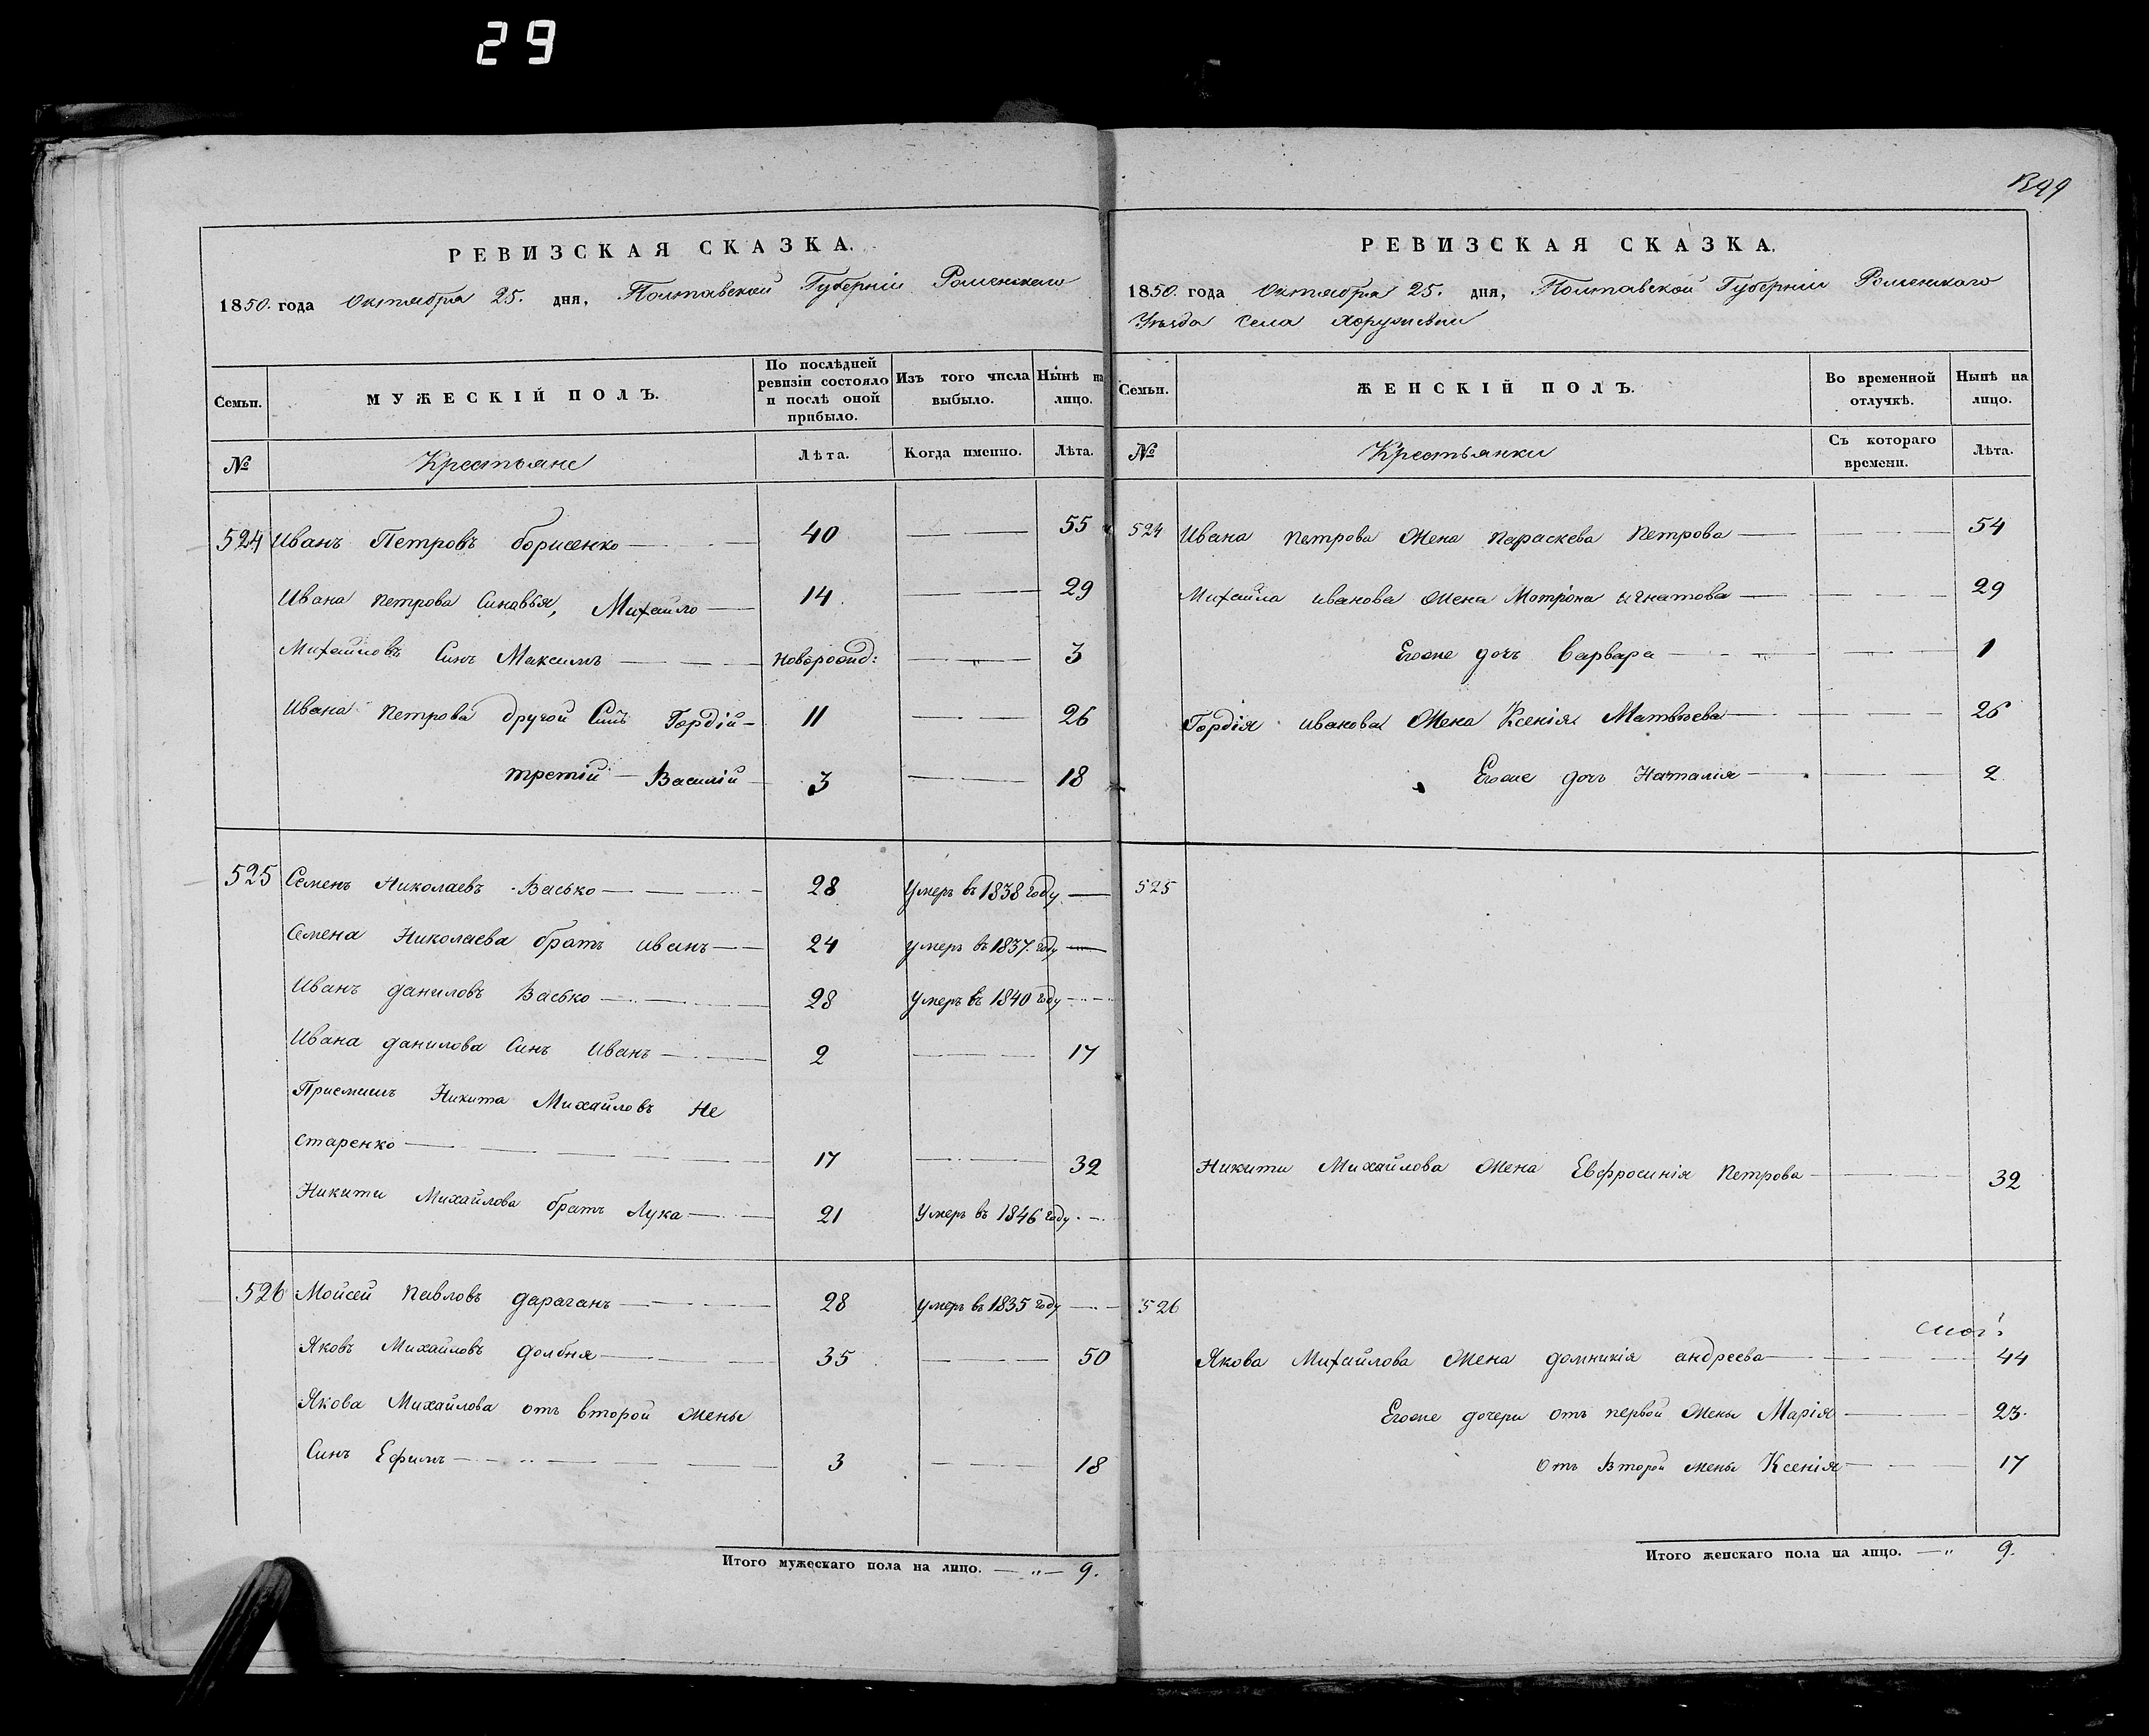 29
РЕВИЗСКАЯ СКАЗКА.
1850. года Октября 25. дня, Полтавской Губерніи Роменскаго
Семьи.
МУЖЕСКІЙ ПОЛЪ.
По послѣдней ревизіи состояло и послѣ оной прибыло.
Изъ того числа выбыло.
Нынѣ на лицо.
№
Крестьяне
Лѣта.
Когда именно.
Лѣта.
524 Иванъ Петровъ борисенко 40 — — 55
Ивана петрова Синавья, Михайло — 14. — — 29
Михайловъ Синъ Максимъ — — новорожд: — „ — 3
Ивана Петрова другой Синъ Гордій — 11 — — 26
третій — Василій 3 — — 18
525 Семенъ Николаевъ Васько — — 28 умеръ въ 1838 году —
Семена Николаева братъ иванъ — — 24 умеръ въ 1837. году —
Иванъ даниловъ Васько — — 28 умеръ въ 1840 году — —
Ивана данилова Синъ Иванъ — — 2 — — 17
Приемишъ Никита Михайловъ Не
старенко — — 17 — — 32
Никити Михайлова братъ Лука — — 21 Умеръ въ 1846 году. —
526 Мойсей павловъ дараганъ — — 28 умеръ въ 1835 году — —
Яковъ Михайловъ долбня — — 35 — — 50
Якова Михайлова отъ второй жены
Синъ Ефимъ — — 3 — — 18
Итого мужескаго пола на лицо. — „ — 9.
РЕВИЗСКАЯ СКАЗКА.
1850. года Октября 25. дня, Полтавской Губерніи Роменскаго
Уѣзда села Хоружевки
Семьи.
ЖЕНСКІЙ ПОЛЪ.
Во временной отлучкѣ.
Нынѣ на лицо.
№
Крестьянки
Съ котораго времени.
Лѣта.
524 Ивана петрова жена параскева петрова — — — 54
Михайла иванова жена Мотрона игнатова — — — 29
Егоже дочъ варвара — — — 1
Гордія иванова жена Ксенія Матвѣева — — — 26
Егоже дочъ Наталія — — — 2
525
Никити Михайлова жена Евфросинія петрова — — 32
526
Якова Михайлова жена домникія андреева — — 44
Егоже дочери отъ первой жены Марія — — 23.
отъ второй жены Ксенія — — 17
Итого женскаго пола на лицо. — „ 9.